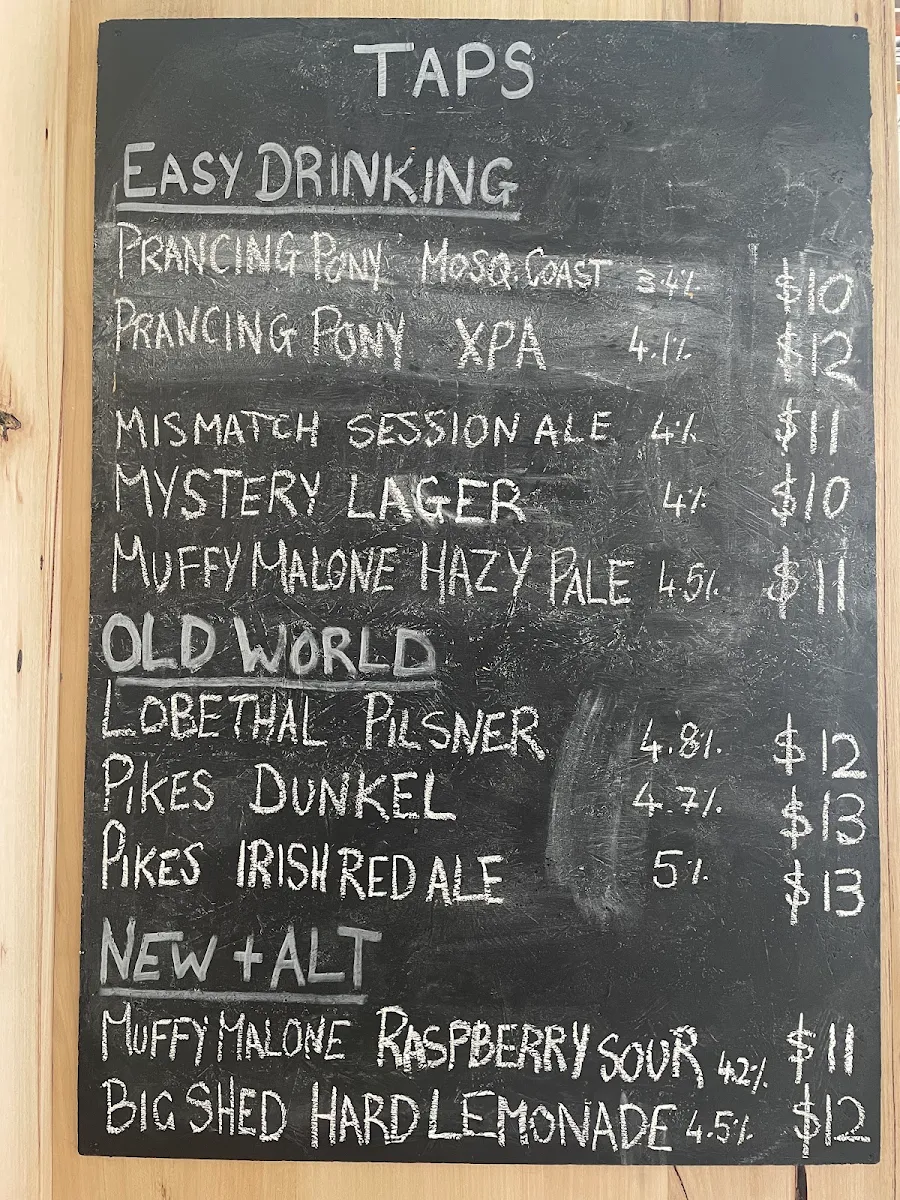 TAPS
EASY DRINKING
PRANCING PONY MOSQ. COAST 3.4% $10
PRANCING PONY XPA 4.1% $12
MISMATCH SESSION ALE 4% $11
MYSTERY LAGER 4% $10
MUFFY MALONE HAZY PALE 4.5% $11
OLD WORLD
LOBETHAL PILSNER 4.8% $12
PIKES DUNKEL 4.7% $13
PIKES IRISH RED ALE 5% $13
NEW + ALT
MUFFY MALONE RASPBERRY SOUR 4.2% $11
BIG SHED HARD LEMONADE 4.5% $12